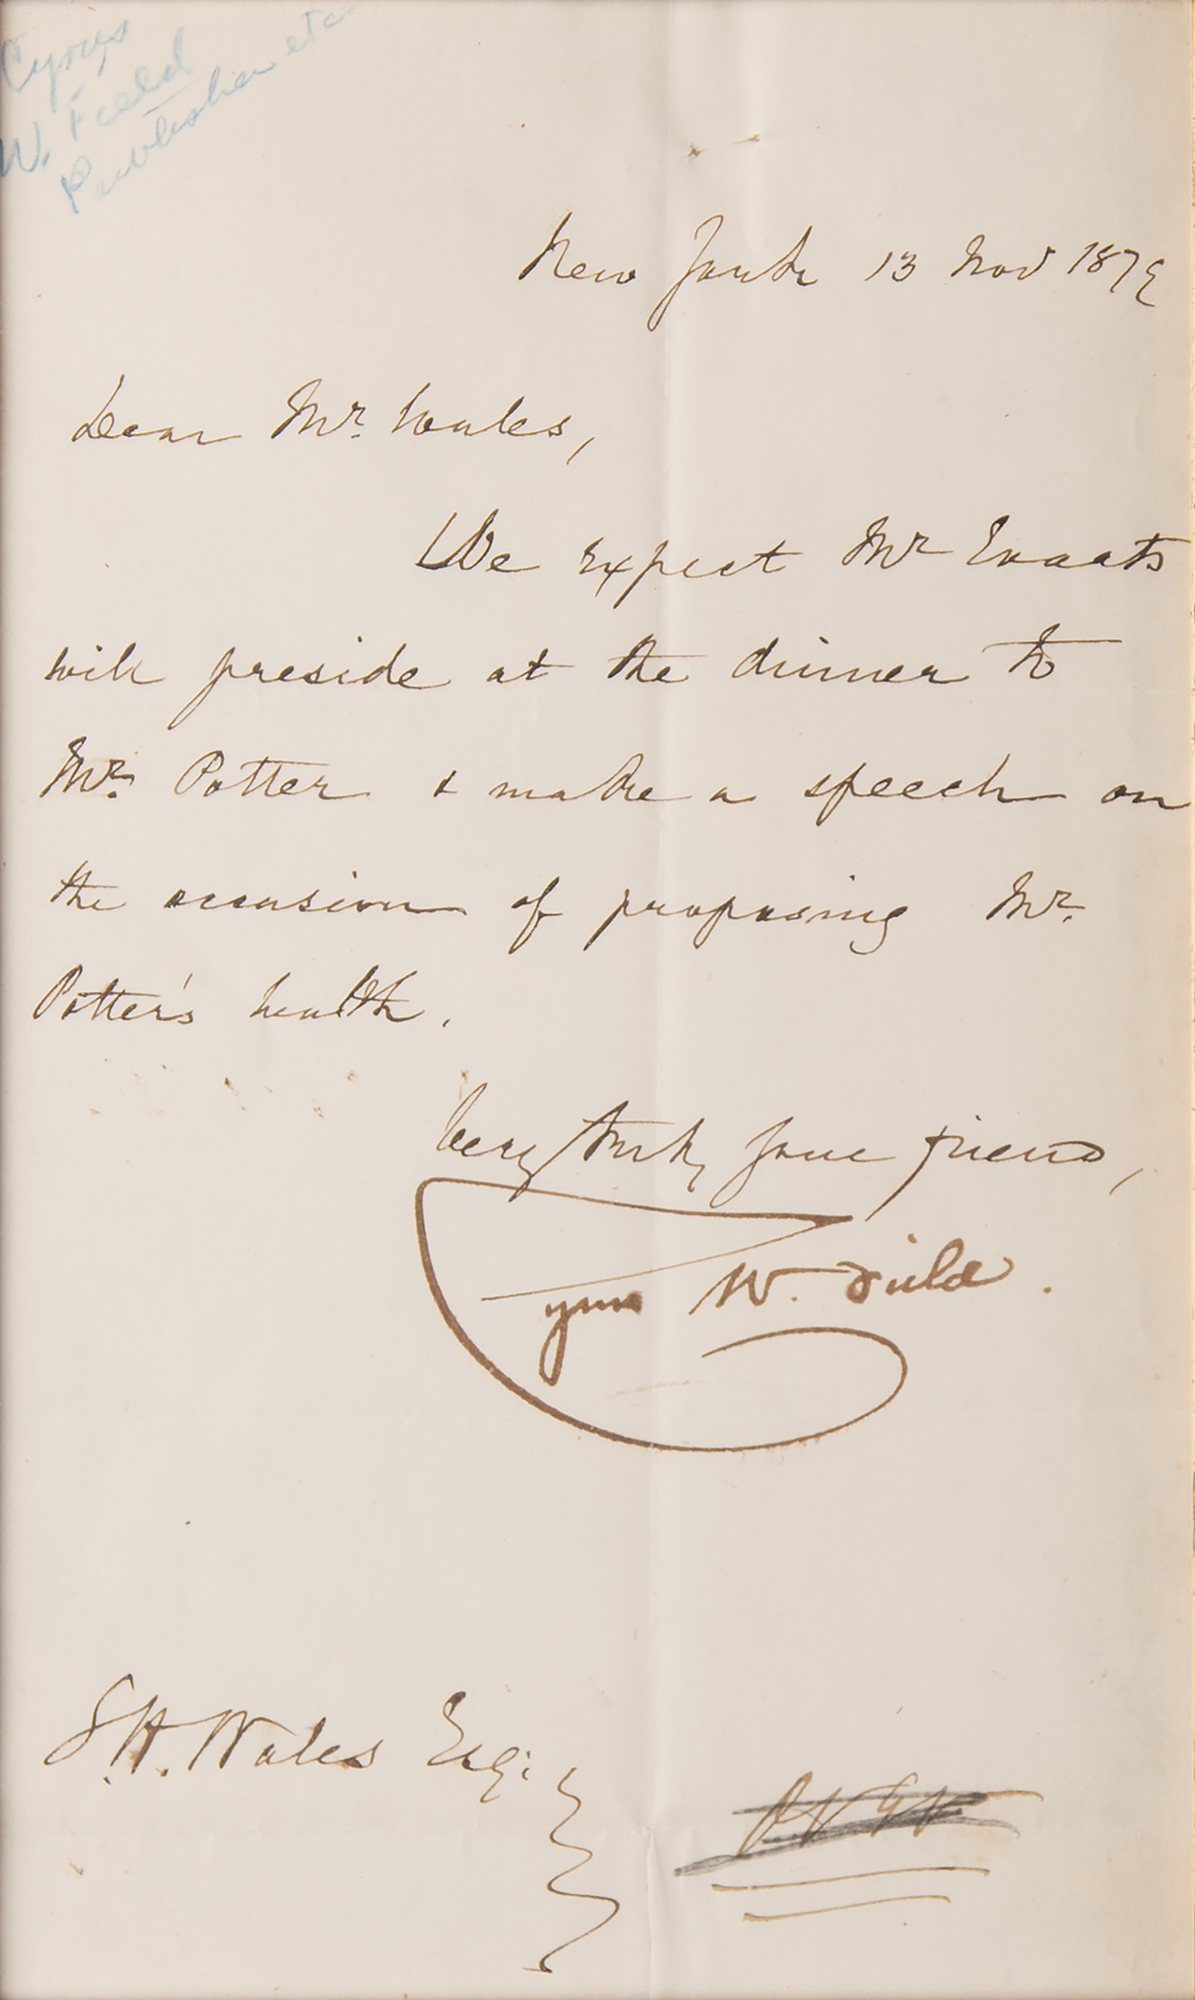 Cyrus
W. Field
Publisher etc
New York 13 Nov 1879
Dear Mr. Wales,
We expect Mr Evarts
will preside at the dinner to
Mr. Potter & make a speech on
the occasion of proposing Mr.
Potter's health.
Very truly your friend,
Cyrus W. Field.
S. H. Wales Esq: